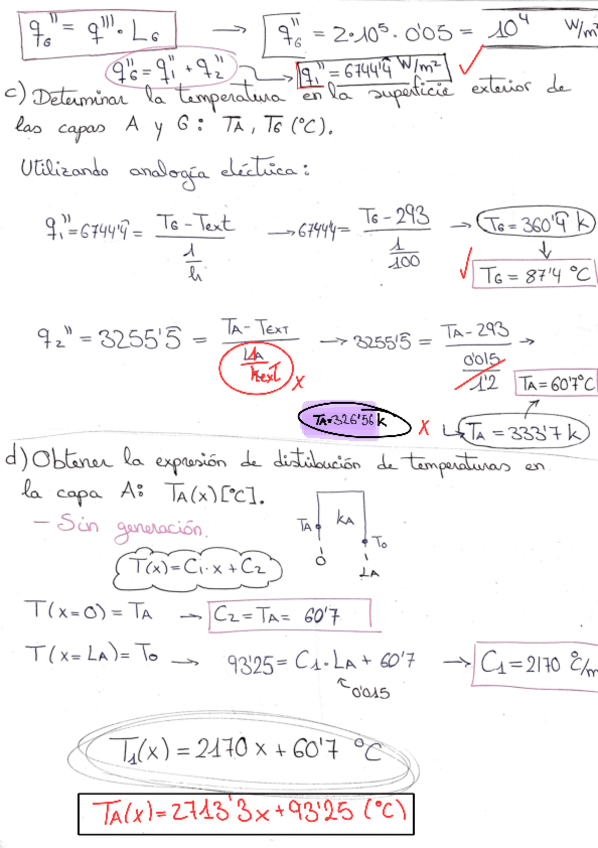 q₆'' = q''' · L₆ → q₆'' = 2·10⁵ · 0'05 = 10⁴ W/m²
q₆'' = q₁'' + q₂'' → q₁'' = 6744'4̂ W/m²
c) Determinar la temperatura en la superficie exterior de
las capas A y G: TA, TG (°C).
Utilizando analogía eléctrica:
q₁'' = 6744'4̂ = (TG - Text) / (1/h) → 6744'4 = (TG - 293) / (1/100) → TG = 360'4̂ k
TG = 87'4 °C
q₂'' = 3255'5̂ = (TA - TEXT) / (LA 1/hext) x → 3255'5̂ = (TA - 293) / (0'015/1'2) →
TA = 60'7°C
TA = 326'56 k x ↳ TA = 333'7 k
d) Obtener la expresión de distribución de temperaturas en
la capa A: TA(x) [°C].
- Sin generación.
TA kA To
0 LA
T(x) = C₁·x + C₂
T(x=0) = TA → C₂ = TA = 60'7
T(x=LA) = To → 93'25 = C₁·LA + 60'7 → C₁ = 2170 °C/m
0'015
T₁(x) = 2170 x + 60'7 °C
TA(x) = 2713'3x + 93'25 (°C)